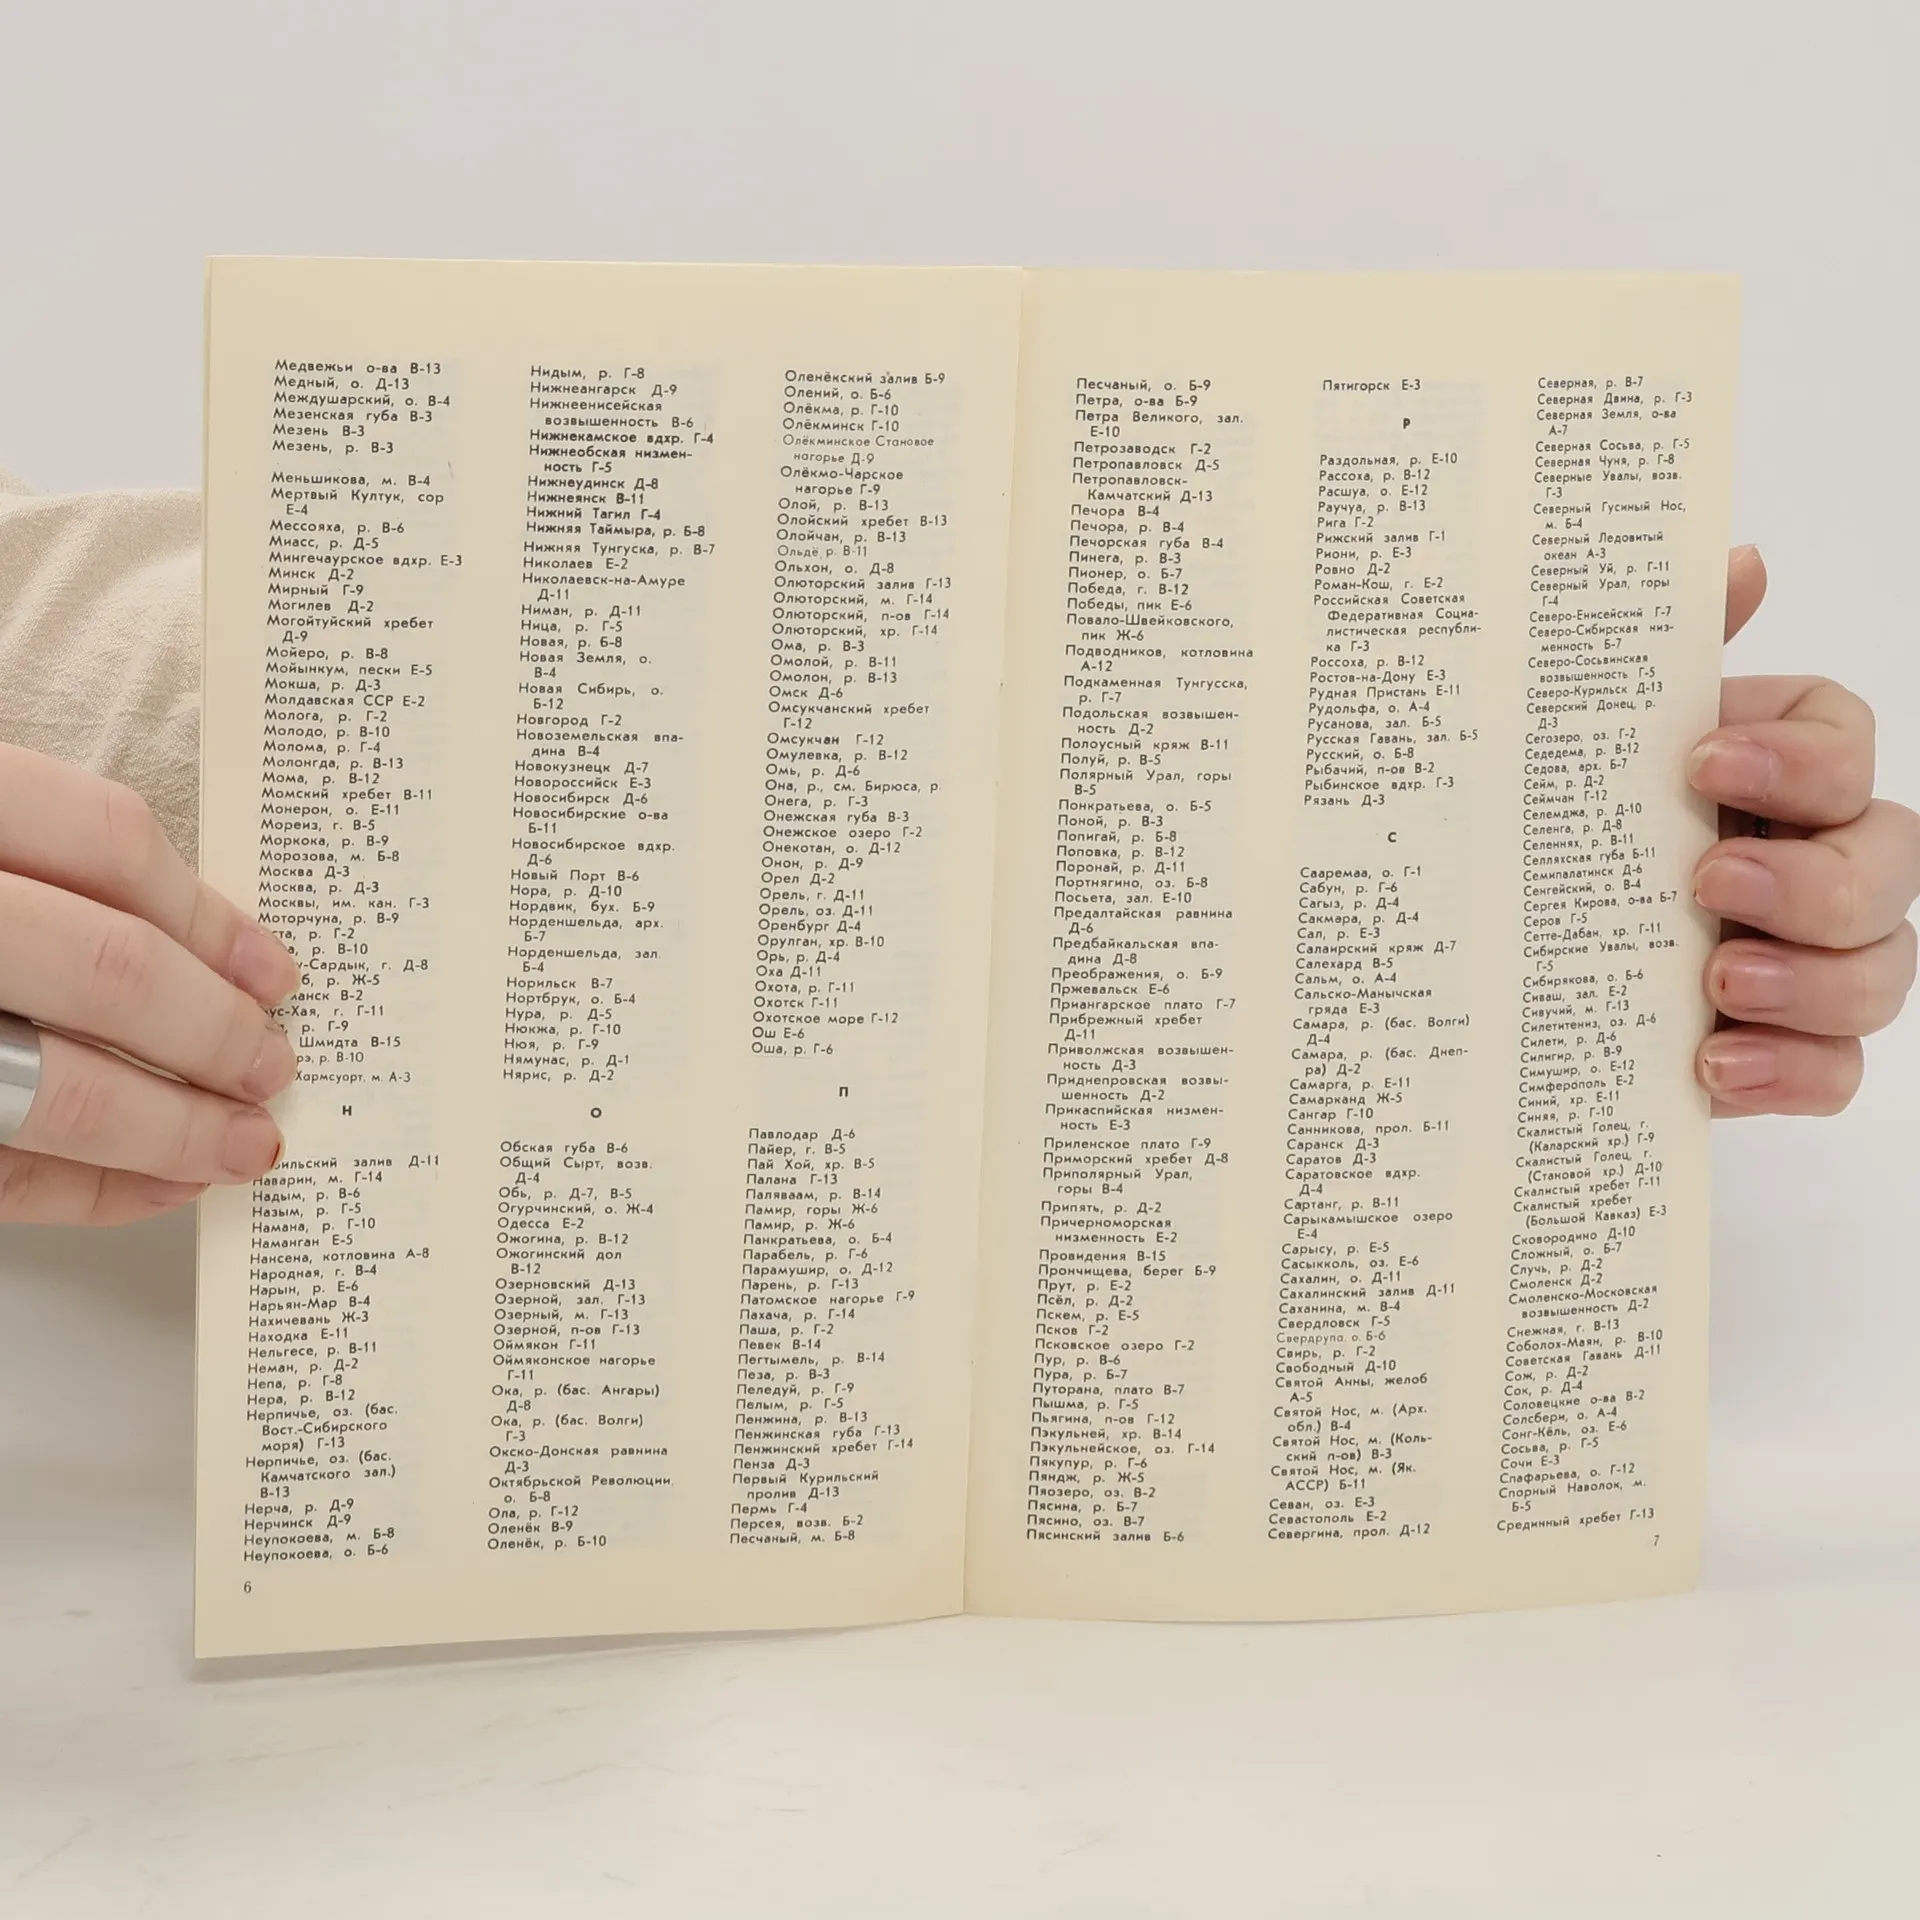 Медвежьи о-ва В-13
Медный, о. Д-13
Междушарский, о. В-4
Мезенская губа В-3
Мезень В-3
Мезень, р. В-3
Меньшикова, м. В-4
Мертвый Култук, сор
Е-4
Мессояха, р. В-6
Миасс, р. Д-5
Мингечаурское вдхр. Е-3
Минск Д-2
Мирный Г-9
Могилев Д-2
Могойтуйский хребет
Д-9
Мойеро, р. В-8
Мойынкум, пески Е-5
Мокша, р. Д-3
Молдавская ССР Е-2
Молога, р. Г-2
Молодо, р. В-10
Молома, р. Г-4
Молонгда, р. В-13
Мома, р. В-12
Момский хребет В-11
Монерон, о. Е-11
Мореиз, г. В-5
Моркока, р. В-9
Морозова, м. Б-8
Москва Д-3
Москва, р. Д-3
Москвы, им. кан. Г-3
Моторчуна, р. В-9
р. Г-2
р. В-10
г. Д-8
р. Ж-5
В-2
г. Г-11
р. Г-9
Шмидта В-15
р. В-10
Хармсуорт, м. А-3
Н
залив Д-11
Наварин, м. Г-14
Надым, р. В-6
Назым, р. Г-5
Намана, р. Г-10
Наманган Е-5
Нансена, котловина А-8
Народная, г. В-4
Нарын, р. Е-6
Нарьян-Мар В-4
Нахичевань Ж-3
Находка Е-11
Нельгесе, р. В-11
Неман, р. Д-2
Непа, р. Г-8
Нера, р. В-12
Нерпичье, оз. (бас.
Вост.-Сибирского
моря) Г-13
Нерпичье, оз. (бас.
Камчатского зал.)
В-13
Нерча, р. Д-9
Нерчинск Д-9
Неупокоева, м. Б-8
Неупокоева, о. Б-6
6
Нидым, р. Г-8
Нижнеангарск Д-9
Нижнеенисейская
возвышенность В-6
Нижнекамское вдхр. Г-4
Нижнеобская низмен-
ность Г-5
Нижнеудинск Д-8
Нижнеянск В-11
Нижний Тагил Г-4
Нижняя Таймыра, р. Б-8
Нижняя Тунгуска, р. В-7
Николаев Е-2
Николаевск-на-Амуре
Д-11
Ниман, р. Д-11
Ница, р. Г-5
Новая, р. Б-8
Новая Земля, о.
В-4
Новая Сибирь, о.
Б-12
Новгород Г-2
Новоземельская впа-
дина В-4
Новокузнецк Д-7
Новороссийск Е-3
Новосибирск Д-6
Новосибирские о-ва
Б-11
Новосибирское вдхр.
Д-6
Новый Порт В-6
Нора, р. Д-10
Нордвик, бух. Б-9
Норденшельда, арх.
Б-7
Норденшельда, зал.
Б-4
Норильск В-7
Нортбрук, о. Б-4
Нура, р. Д-5
Нюкжа, р. Г-10
Нюя, р. Г-9
Нямунас, р. Д-1
Нярис, р. Д-2
О
Обская губа В-6
Общий Сырт, возв.
Д-4
Обь, р. Д-7, В-5
Огурчинский, о. Ж-4
Одесса Е-2
Ожогина, р. В-12
Ожогинский дол
В-12
Озерновский Д-13
Озерной, зал. Г-13
Озерный, м. Г-13
Озерной, п-ов Г-13
Оймякон Г-11
Оймяконское нагорье
Г-11
Ока, р. (бас. Ангары)
Д-8
Ока, р. (бас. Волги)
Г-3
Окско-Донская равнина
Д-3
Октябрьской Революции,
о. Б-8
Ола, р. Г-12
Оленёк В-9
Оленёк, р. Б-10
Оленёкский залив Б-9
Олений, о. Б-6
Олёкма, р. Г-10
Олёкминск Г-10
Олёкминское Становое
нагорье Д-9
Олёкмо-Чарское
нагорье Г-9
Олой, р. В-13
Олойский хребет В-13
Олойчан, р. В-13
Ольдё, р. В-11
Ольхон, о. Д-8
Олюторский залив Г-13
Олюторский, м. Г-14
Олюторский, п-ов Г-14
Олюторский, хр. Г-14
Ома, р. В-3
Омолой, р. В-11
Омолон, р. В-13
Омск Д-6
Омсукчанский хребет
Г-12
Омсукчан Г-12
Омулевка, р. В-12
Омь, р. Д-6
Она, р., см. Бирюса, р.
Онега, р. Г-3
Онежская губа В-3
Онежское озеро Г-2
Онекотан, о. Д-12
Онон, р. Д-9
Орел Д-2
Орель, г. Д-11
Орель, оз. Д-11
Оренбург Д-4
Орулган, хр. В-10
Орь, р. Д-4
Оха Д-11
Охота, р. Г-11
Охотск Г-11
Охотское море Г-12
Ош Е-6
Оша, р. Г-6
П
Павлодар Д-6
Пайер, г. В-5
Пай Хой, хр. В-5
Палана Г-13
Паляваам, р. В-14
Памир, горы Ж-6
Памир, р. Ж-6
Панкратьева, о. Б-4
Парабель, р. Г-6
Парамушир, о. Д-12
Парень, р. Г-13
Патомское нагорье Г-9
Пахача, р. Г-14
Паша, р. Г-2
Певек В-14
Пегтымель, р. В-14
Пеза, р. В-3
Пеледуй, р. Г-9
Пелым, р. Г-5
Пенжина, р. В-13
Пенжинская губа Г-13
Пенжинский хребет Г-14
Пенза Д-3
Первый Курильский
пролив Д-13
Пермь Г-4
Персея, возв. Б-2
Песчаный, м. Б-8
Песчаный, о. Б-9
Петра, о-ва Б-9
Петра Великого, зал.
Е-10
Петрозаводск Г-2
Петропавловск Д-5
Петропавловск-
Камчатский Д-13
Печора В-4
Печора, р. В-4
Печорская губа В-4
Пинега, р. В-3
Пионер, о. Б-7
Победа, г. В-12
Победы, пик Е-6
Повало-Швейковского,
пик Ж-6
Подводников, котловина
А-12
Подкаменная Тунгусска,
р. Г-7
Подольская возвышен-
ность Д-2
Полоусный кряж В-11
Полуй, р. В-5
Полярный Урал, горы
В-5
Понкратьева, о. Б-5
Поной, р. В-3
Попигай, р. Б-8
Поповка, р. В-12
Поронай, р. Д-11
Портнягино, оз. Б-8
Посьета, зал. Е-10
Предалтайская равнина
Д-6
Предбайкальская впа-
дина Д-8
Преображения, о. Б-9
Пржевальск Е-6
Приангарское плато Г-7
Прибрежный хребет
Д-11
Приволжская возвышен-
ность Д-3
Приднепровская возвы-
шенность Д-2
Прикаспийская низмен-
ность Е-3
Приленское плато Г-9
Приморский хребет Д-8
Приполярный Урал,
горы В-4
Припять, р. Д-2
Причерноморская
низменность Е-2
Провидения В-15
Прончищева, берег Б-9
Прут, р. Е-2
Псёл, р. Д-2
Пскем, р. Е-5
Псков Г-2
Псковское озеро Г-2
Пур, р. В-6
Пура, р. Б-7
Путорана, плато В-7
Пышма, р. Г-5
Пьягина, п-ов Г-12
Пэкульней, хр. В-14
Пэкульнейское, оз. Г-14
Пякупур, р. Г-6
Пяндж, р. Ж-5
Пяозеро, оз. В-2
Пясина, р. Б-7
Пясино, оз. В-7
Пясинский залив Б-6
Пятигорск Е-3
Р
Раздольная, р. Е-10
Рассоха, р. В-12
Расшуа, о. Е-12
Раучуа, р. В-13
Рига Г-2
Рижский залив Г-1
Риони, р. Е-3
Ровно Д-2
Роман-Кош, г. Е-2
Российская Советская
Федеративная Социа-
листическая республи-
ка Г-3
Россоха, р. В-12
Ростов-на-Дону Е-3
Рудная Пристань Е-11
Рудольфа, о. А-4
Русанова, зал. Б-5
Русская Гавань, зал. Б-5
Русский, о. Б-8
Рыбачий, п-ов В-2
Рыбинское вдхр. Г-3
Рязань Д-3
С
Сааремаа, о. Г-1
Сабун, р. Г-6
Сагыз, р. Д-4
Сакмара, р. Д-4
Сал, р. Е-3
Салаирский кряж Д-7
Салехард В-5
Сальм, о. А-4
Сальско-Манычская
гряда Е-3
Самара, р. (бас. Волги)
Д-4
Самара, р. (бас. Днеп-
ра) Д-2
Самарга, р. Е-11
Самарканд Ж-5
Сангар Г-10
Санникова, прол. Б-11
Саранск Д-3
Саратов Д-3
Саратовское вдхр.
Д-4
Сартанг, р. В-11
Сарыкамышское озеро
Е-4
Сарысу, р. Е-5
Сасыкколь, оз. Е-6
Сахалин, о. Д-11
Сахалинский залив Д-11
Саханина, м. В-4
Свердловск Г-5
Свердрупа, о. Б-6
Свирь, р. Г-2
Свободный Д-10
Святой Анны, желоб
А-5
Святой Нос, м. (Арх.
обл.) В-4
Святой Нос, м. (Коль-
ский п-ов) В-3
Святой Нос, м. (Як.
АССР) Б-11
Севан, оз. Е-3
Севастополь Е-2
Севергина, прол. Д-12
Северная, р. В-7
Северная Двина, р. Г-3
Северная Земля, о-ва
А-7
Северная Сосьва, р. Г-5
Северная Чуня, р. Г-8
Северные Увалы, возв.
Г-3
Северный Гусиный Нос,
м. Б-4
Северный Ледовитый
океан А-3
Северный Уй, р. Г-11
Северный Урал, горы
Г-4
Северо-Енисейский Г-7
Северо-Сибирская низ-
менность Б-7
Северо-Сосьвинская
возвышенность Г-5
Северо-Курильск Д-13
Северский Донец, р.
Д-3
Сегозеро, оз. Г-2
Седедема, р. В-12
Седова, арх. Б-7
Сейм, р. Д-2
Сеймчан Г-12
Селемджа, р. Д-10
Селенга, р. Д-8
Селеннях, р. В-11
Селляхская губа Б-11
Семипалатинск Д-6
Сенгейский, о. В-4
Сергея Кирова, о-ва Б-7
Серов Г-5
Сетте-Дабан, хр. Г-11
Сибирские Увалы, возв.
Г-5
Сибирякова, о. Б-6
Сиваш, зал. Е-2
Сивучий, м. Г-13
Силетитениз, оз. Д-6
Силети, р. Д-6
Силигир, р. В-9
Симушир, о. Е-12
Симферополь Е-2
Синий, хр. Е-11
Синяя, р. Г-10
Скалистый Голец, г.
(Каларский хр.) Г-9
Скалистый Голец, г.
(Становой хр.) Д-10
Скалистый хребет Г-11
Скалистый хребет
(Большой Кавказ) Е-3
Сковородино Д-10
Сложный, о. Б-7
Случь, р. Д-2
Смоленск Д-2
Смоленско-Московская
возвышенность Д-2
Снежная, г. В-13
Соболох-Маян, р. В-10
Советская Гавань Д-11
Сож, р. Д-2
Сок, р. Д-4
Соловецкие о-ва В-2
Солсбери, о. А-4
Сонг-Кёль, оз. Е-6
Сосьва, р. Г-5
Сочи Е-3
Спафарьева, о. Г-12
Спорный Наволок, м.
Б-5
Срединный хребет Г-13
7